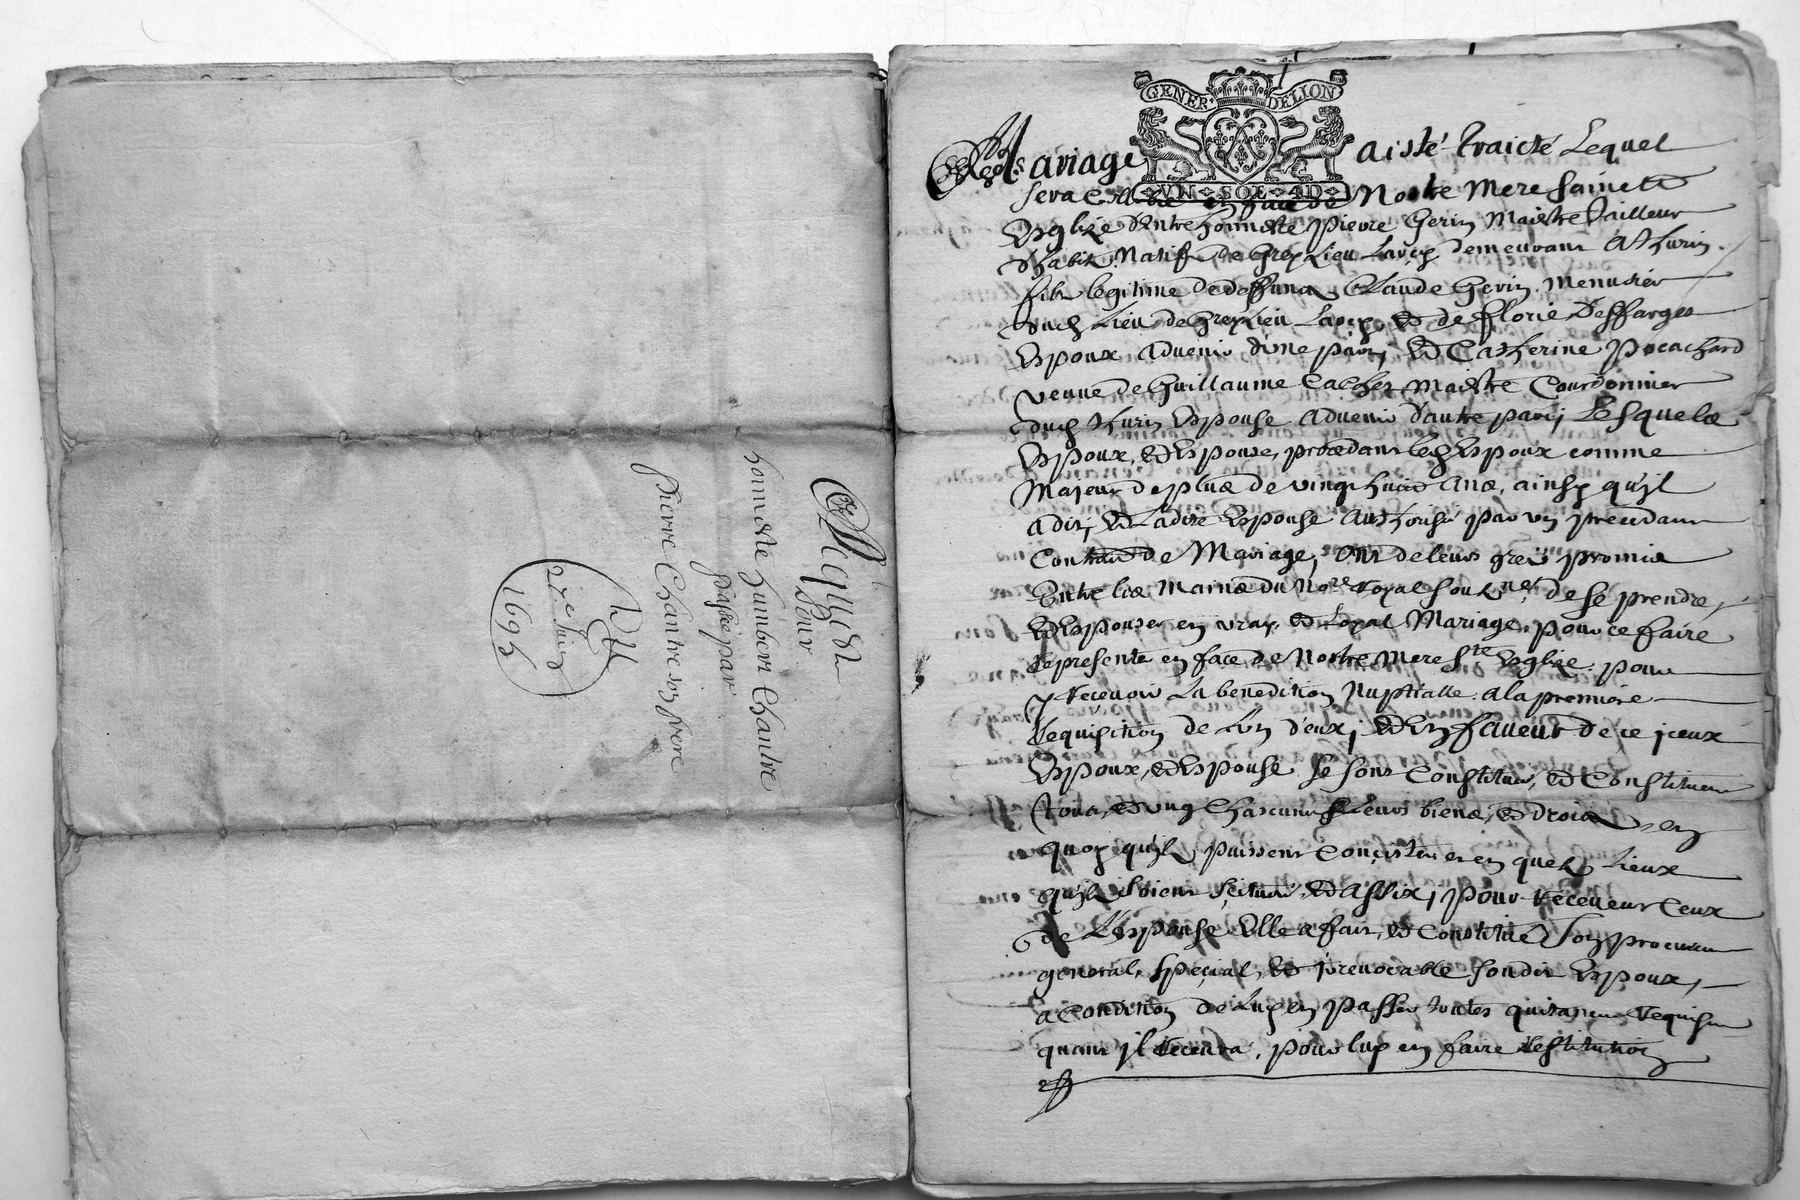 Acquict
Pour
honneste humbert Chantre
passé par
Pierre Chantre son frere
Du
21e Juin
1695
GENER· DE LION
VN SOL 4D
Mariage a esté traicté Lequel
sera Celebré en face de Nostre Mere saincte
Esglize Entre honneste Pierre Gerin Maistre tailleur
d'habitz Natif de Grezieu Lavez demeurant A thurin
filz legitime de deffunct Claude Gerin Menusier
dud Lieu de Grezieu Lavez, Et de florie Deffarges
Espoux aduenir d'vne part, Et Catherine Pocachard
veuue de Guillaume Calchet Maistre Courdonnier
dud thurin Espouse aduenir d'autre part, Lesquels
Espoux, Et Espouse, procedant led Espoux comme
Majeur de plus de vingt huict ans, ainsy qu'jl
a dit, Et Ladite Espouse Authorisée par vn precedant
Contract de Mariage, Ont de leurs grez promis
Entre les mains du Nore Royal soubzné de se prendre,
Et Espouser en vray, Et Loyal Mariage, pour ce faire
se presenter en face de Nostre Mere Ste Esglize pour
y Receuoir La benediction Nuptialle a la premiere
Requisition de L'vn d'eux, Et En faueur de ce jceux
Espoux, Et Espouse se sont Constitués, Et Constituent
tous, Et vng Chascuns Leurs biens, Et droicts, en
quoy qu'jlz puissent Concister et en quelz Lieux
qu'jlz soient scitués, Et assix, pour Receueur Ceux
de L'Espouse Elle a fait, Et Constitué Son procureur
general, special, Et jrreuocable sondit Espoux,
a Condition de Luy en passer toutes quitances Requises
quant jl Receura, pour luy en faire Restitution